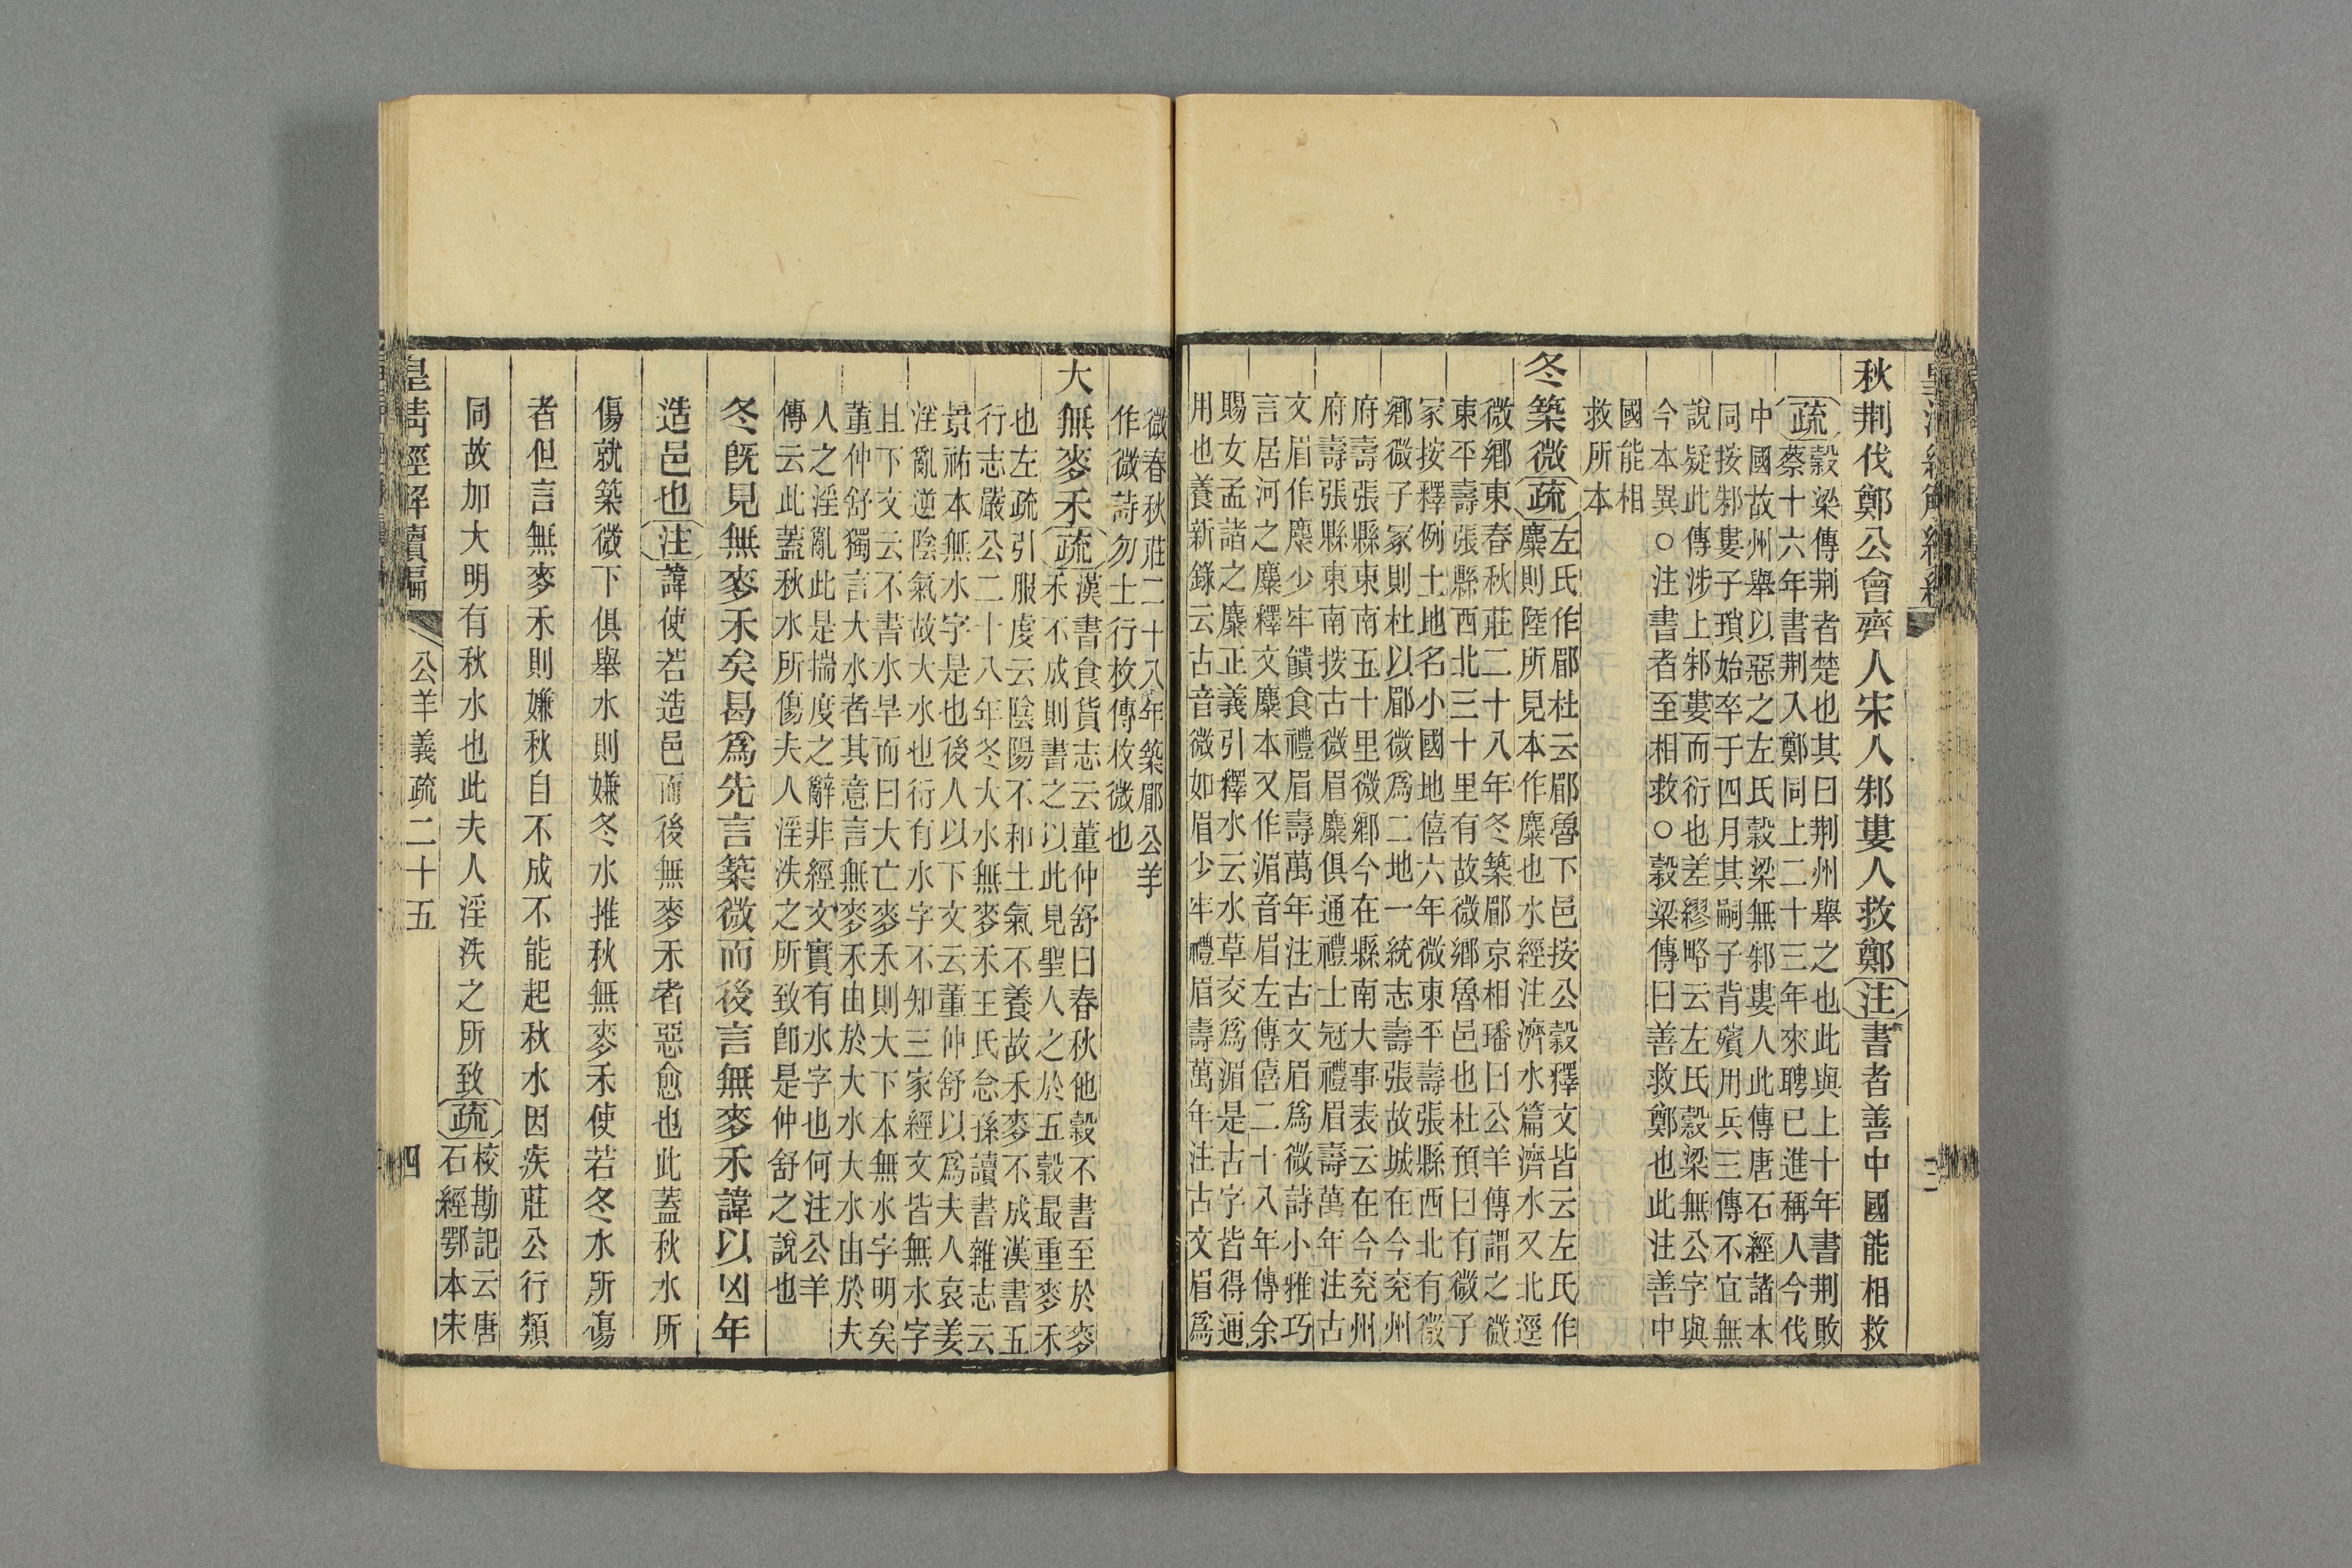 秋荆伐鄭公會齊人宋人邾婁人救鄭注書者善中國能相救
疏穀梁傳荆者楚也其曰荆州舉之也此與上十年書荆敗
蔡十六年書荆入鄭同上二十三年來聘已進稱人今伐
中國故州舉以惡之左氏穀梁無邾婁人此傳唐石經諸本
同按邾婁子瑣始卒于四月其嗣子背殯用兵三傳不宜無
說疑此傳涉上邾婁而衍也差繆略云左氏穀梁無公字與
今本異○注書者至相救○穀梁傳曰善救鄭也此注善中
國能相
救所本
冬築微疏左氏作郿杜云郿魯下邑按公穀釋文皆云左氏作
麋則陸所見本作麋也水經注濟水篇濟水又北逕
微鄉東春秋莊二十八年冬築郿京相璠曰公羊傳謂之微
東平壽張縣西北三十里有故微鄉魯邑也杜預曰有微子
冢按釋例土地名小國地僖六年微東平壽張縣西北有微
鄉微子冢則杜以郿微爲二地一統志壽張故城在今兖州
府壽張縣東南五十里微鄉今在縣南大事表云在今兖州
府壽張縣東南按古微眉麋俱通禮士冠禮眉壽萬年注古
文眉作麋少牢饋食禮眉壽萬年注古文眉爲微詩小雅巧
言居河之麋釋文麋本又作湄音眉左傳僖二十八年傳余
賜女孟諸之麋正義引釋水云水草交爲湄是古字皆得通
用也養新錄云古音微如眉少牢禮眉壽萬年注古文眉爲
微春秋莊二十八年築郿公羊
作微詩勿士行枚傳枚微也
大無麥禾疏漢書食貨志云董仲舒曰春秋他穀不書至於麥
禾不成則書之以此見聖人之於五穀最重麥禾
也左疏引服虔云陰陽不和土氣不養故禾麥不成漢書五
行志嚴公二十八年冬大水無麥禾王氏念孫讀書雜志云
景祐本無水字是也後人以下文云董仲舒以爲夫人哀姜
淫亂逆陰氣故大水也衍有水字不知三家經文皆無水字
且下文云不書水旱而曰大亡麥禾則大下本無水字明矣
董仲舒獨言大水者其意言無麥禾由於大水大水由於夫
人之淫亂此是揣度之辭非經文實有水字也何注公羊
傳云此蓋秋水所傷夫人淫泆之所致卽是仲舒之說也
冬旣見無麥禾矣曷爲先言築微而後言無麥禾諱以凶年
造邑也注諱使若造邑而後無麥禾者惡愈也此蓋秋水所
傷就築微下俱舉水則嫌冬水推秋無麥禾使若冬水所傷
者但言無麥禾則嫌秋自不成不能起秋水因疾莊公行類
同故加大明有秋水也此夫人淫泆之所致疏校勘記云唐
石經鄂本宋
皇清經解續編
公羊義疏二十五
四